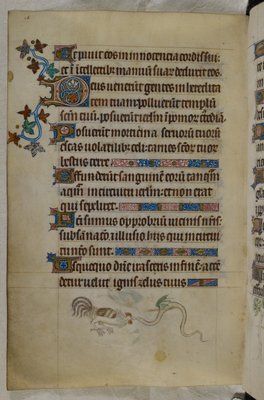 Et pavit eos in innocencia cordis sui
et in intellectib' manuum suar' deduxit eos
Deus venerunt gentes in heredita
tem tuam polluerunt templum
sc̄m tuū posuerūt ierl'm ī pomor' custodiā
Posuerunt morticina servorū tuor'
escas volatilib' celi carnes sc̄or' tuor'
bestiis terre
Effuderunt sanguinē eorū tanq̄m
aq̄m in circuitu ierl'm et non erat
qui sepeliret
Facti sumus opprobriū vicinis n̄ris
subsānatō et illusio hiis qui in circui
tu n̄ro sunt
Usquequo dn̄e irasceris in finē acc̄
detur velut ignis zelus tuus